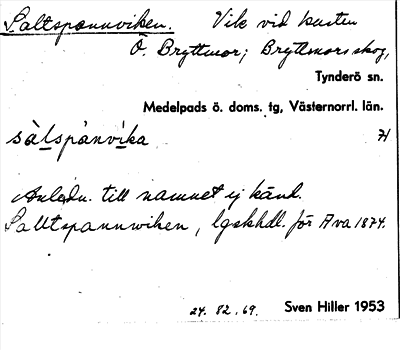 Saltspannviken. Vik vid kusten
Ö. Bryttmor; Bryttmors skog,
Tynderö sn.
Medelpads ö. doms. tg, Västernorrl. län.
sàlspànvika 71
Anledn. till namnet ej känd.
Salltspannwiken, lgskhdl. för Ava 1874.
24. 82. 69. Sven Hiller 1953